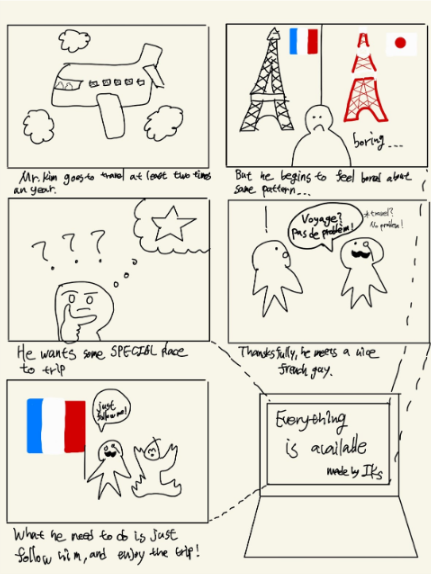 Mr. Kim goes to travel at least two times
an year.
boring...
But he begins to feel bored about
same pattern...
? ? ?
He wants some SPECIAL place
to trip
Voyage?
pas de problèm!
*travel?
No problem!
Thanksfully, he meets a nice
french guy.
just
follow me!
What he need to do is just
follow him, and enjoy the trip!
Everything
is available
made by IKs